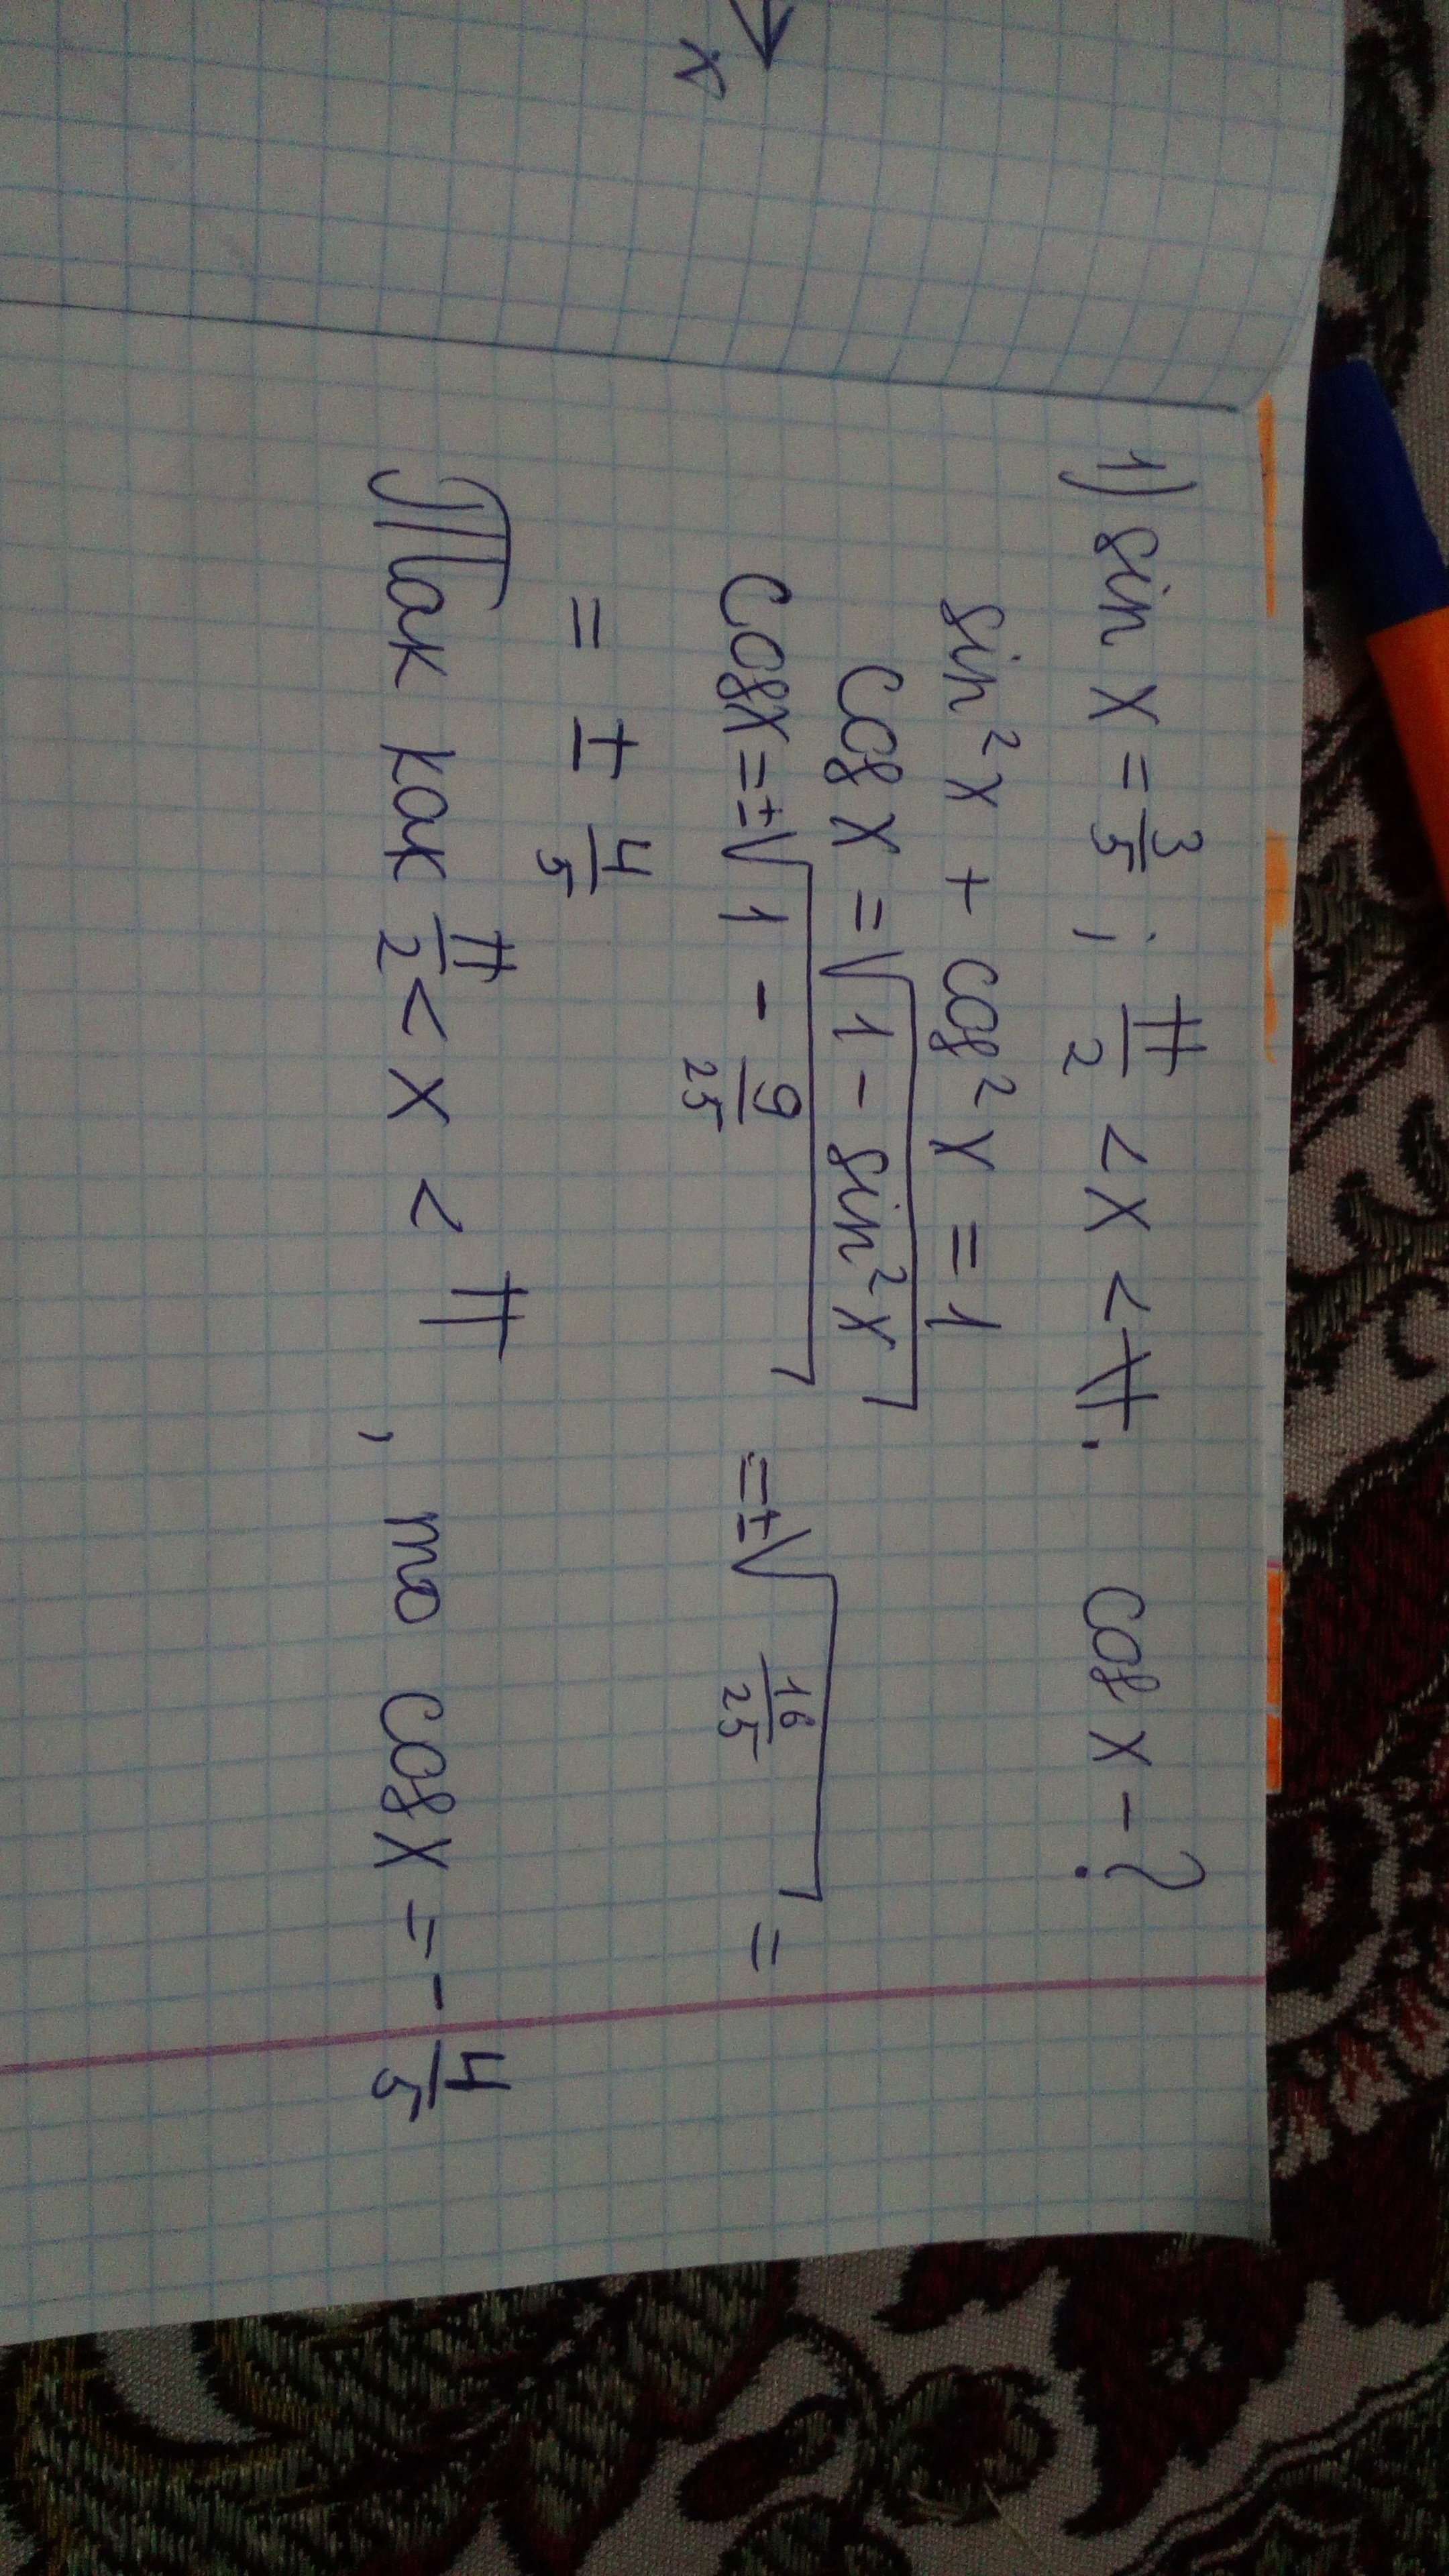 x
1) sin x = 3/5 ; π/2 < x < π. cos x - ?
sin² x + cos² x = 1
cos x = √(1 - sin² x)
cos x = ±√(1 - 9/25) = ±√(16/25) =
= ± 4/5
Так как π/2 < x < π , то cos x = - 4/5